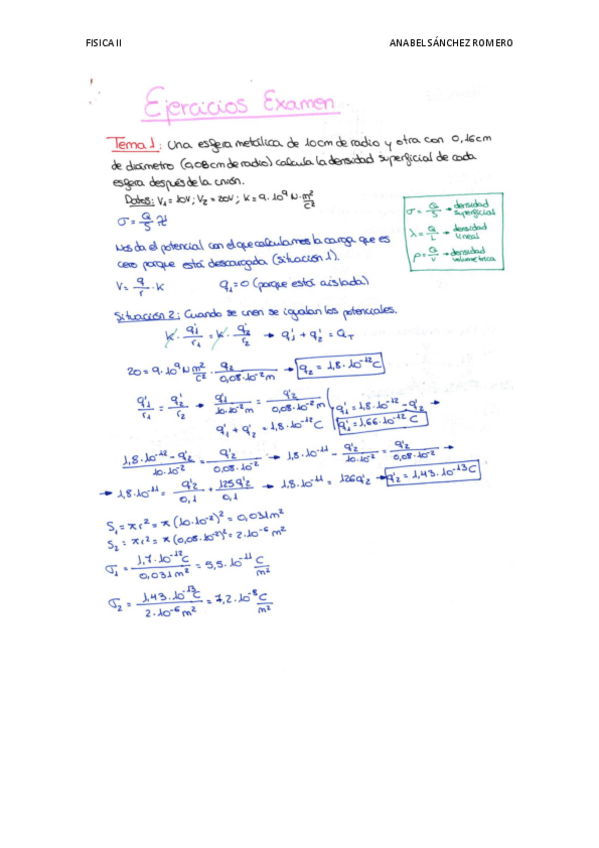 FISICA II
ANABEL SÁNCHEZ ROMERO
Ejercicios Examen
Tema 1: Una esfera metálica de 10cm de radio y otra con 0,16cm
de diámetro (0,08cm de radio) calcula la densidad superficial de cada
esfera después de la unión.
Datos: V₁ = 10V; V₂ = 20V; K = 9·10⁹ N·m²/C²
σ = Q/S
σ = Q/S → densidad superficial
λ = Q/L → densidad lineal
ρ = Q/V → densidad volumétrica
Nos da el potencial con el que calculamos la carga que es
cero porque está descargada (situación 1).
V = q/r · K q₁ = 0 (porque está aislada)
Situación 2: Cuando se unen se igualan los potenciales.
K · q'₁/r₁ = K · q'₂/r₂ → q'₁ + q'₂ = Q_T
20 = 9·10⁹ N m²/C² · q₂/0,08·10⁻² m → q₂ = 1,8·10⁻¹² C
q'₁/r₁ = q'₂/r₂ → q'₁/10·10⁻² m = q'₂/0,08·10⁻² m
q'₁ + q'₂ = 1,8·10⁻¹² C
q'₁ = 1,8·10⁻¹² - q'₂ →
q'₁ = 1,66·10⁻¹² C
1,8·10⁻¹² - q'₂/10·10⁻² = q'₂/0,08·10⁻² → 1,8·10⁻¹¹ - q'₂/10·10⁻² = q'₂/0,08·10⁻² →
→ 1,8·10⁻¹¹ = q'₂/0,1 + 125q'₂/0,1 → 1,8·10⁻¹¹ = 126q'₂ → q'₂ = 1,43·10⁻¹³ C
S₁ = π r² = π (10·10⁻²)² = 0,031 m²
S₂ = π r² = π (0,08·10⁻²)² = 2·10⁻⁶ m²
σ₁ = 1,7·10⁻¹² C/0,031 m² = 5,5·10⁻¹¹ C/m²
σ₂ = 1,43·10⁻¹³ C/2·10⁻⁶ m² = 7,2·10⁻⁸ C/m²